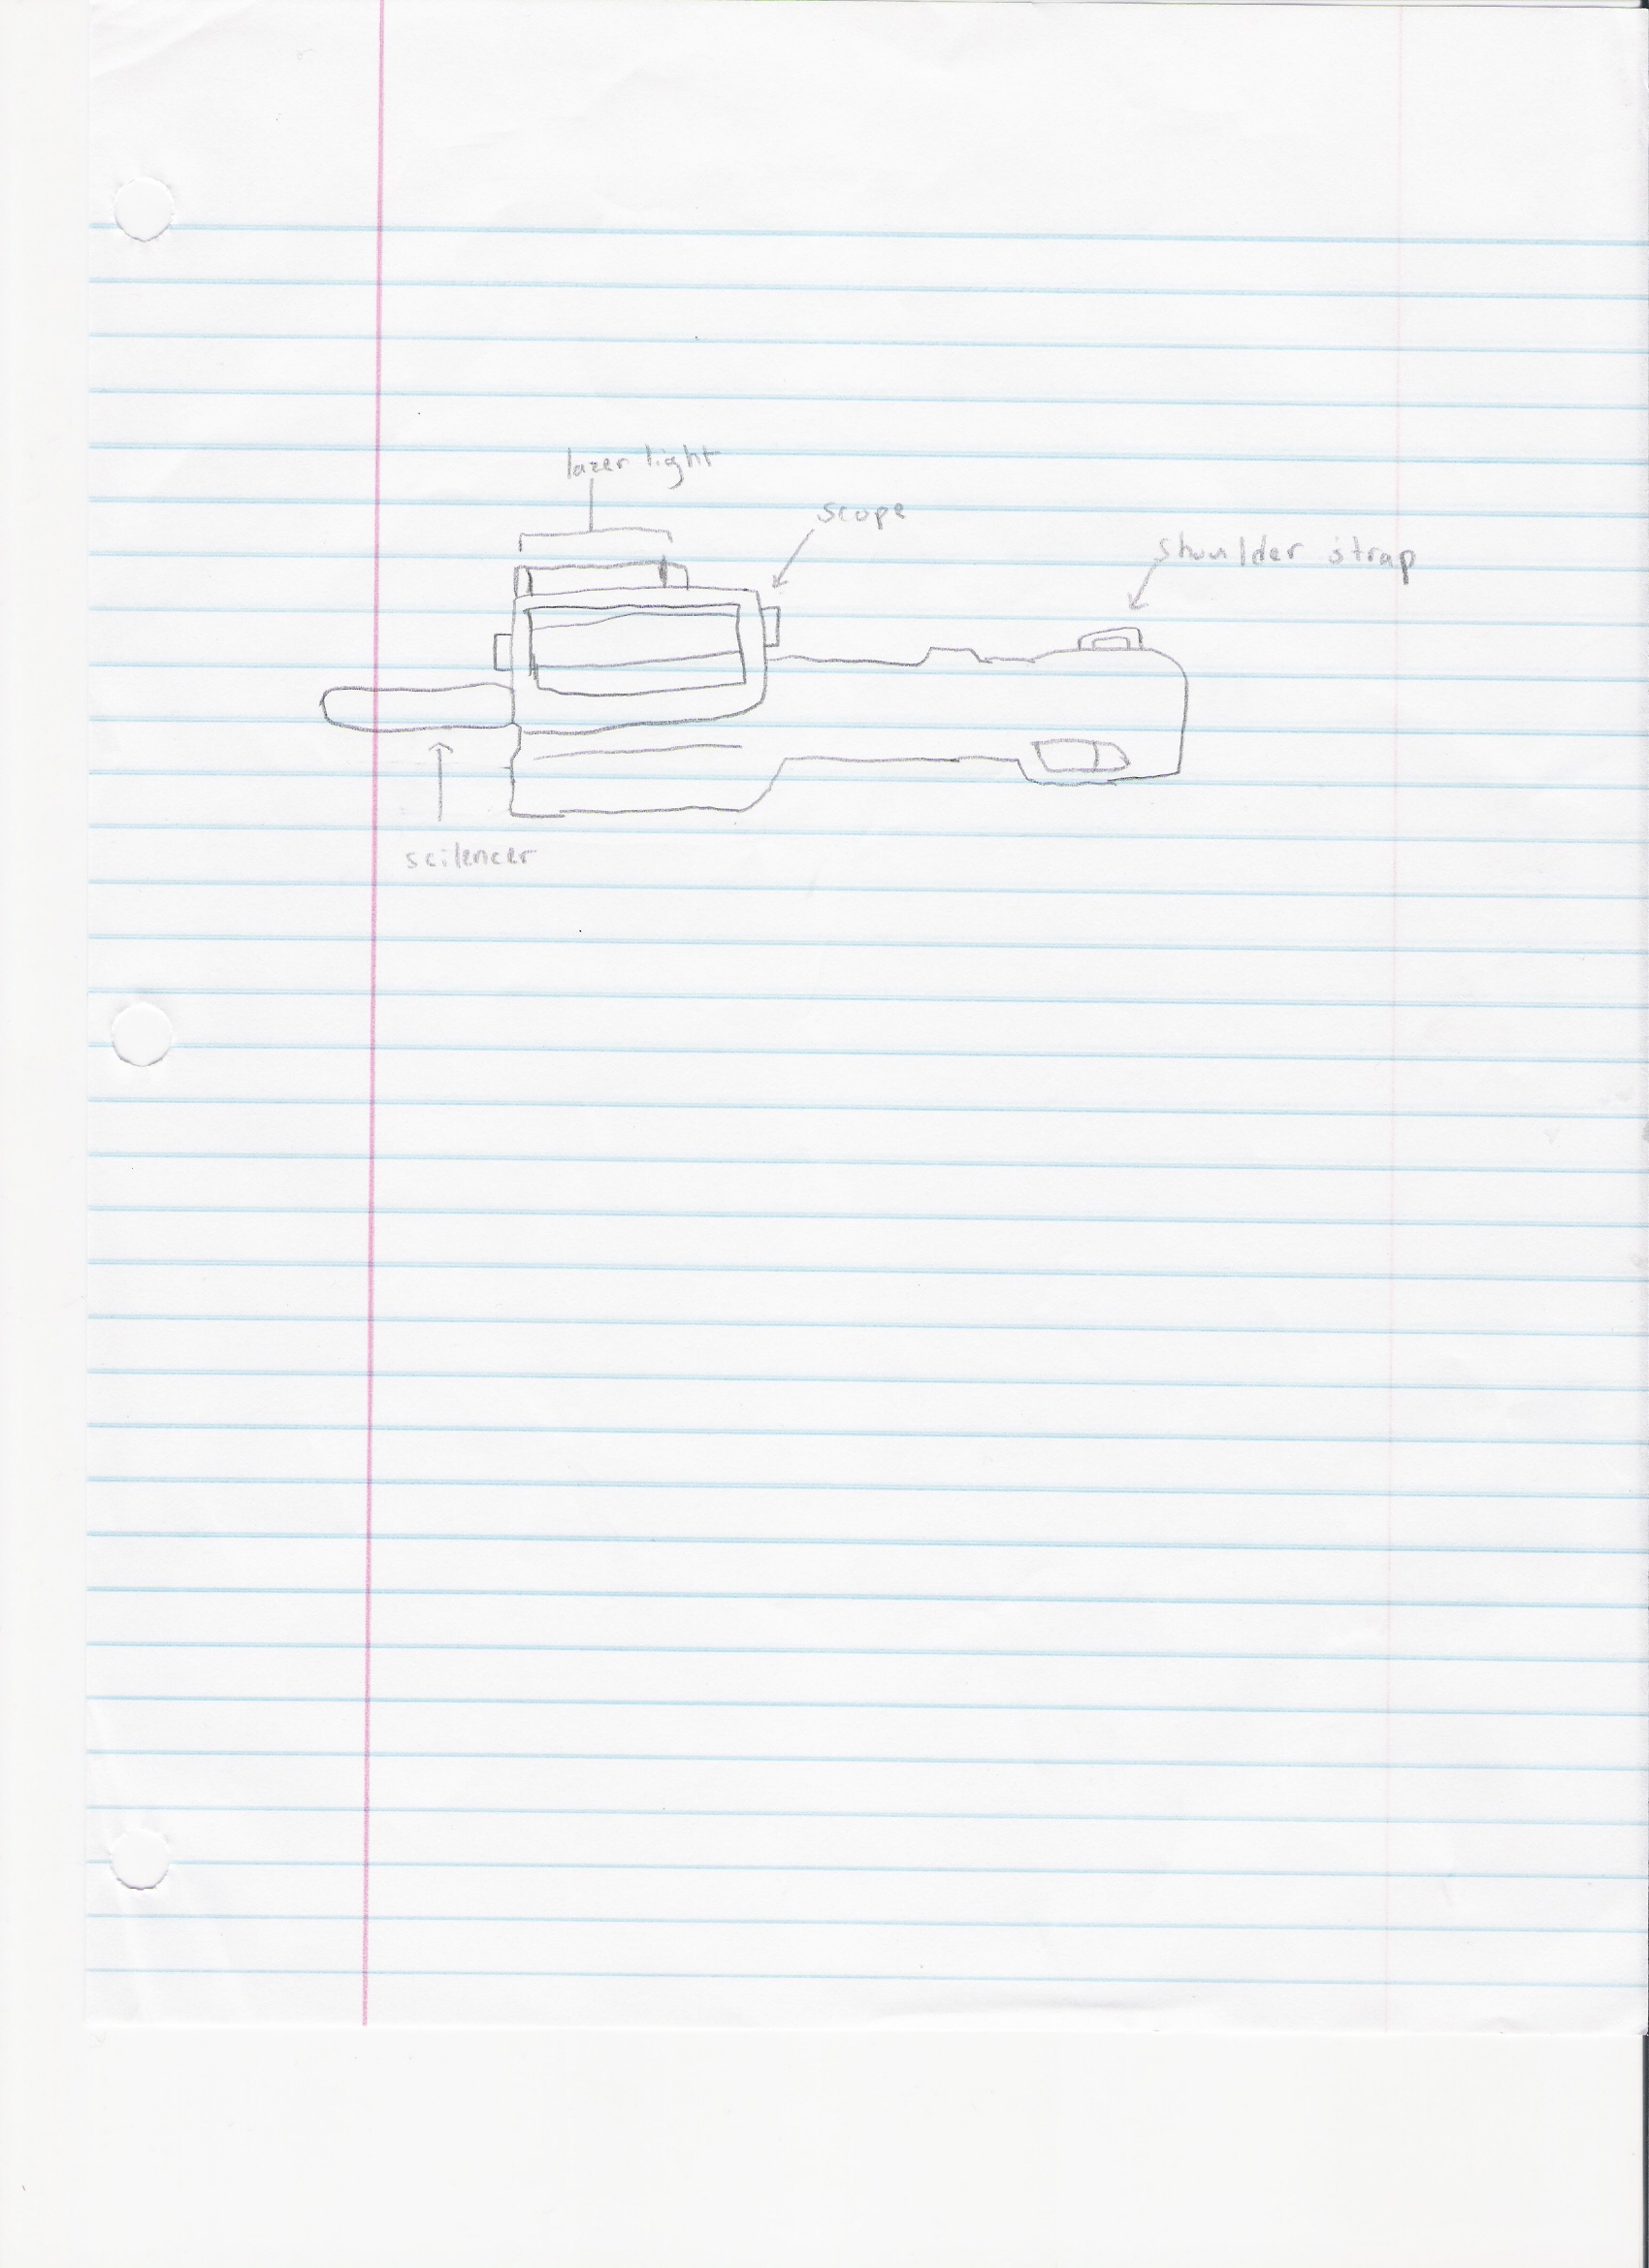 lazer light
scope
shoulder strap
scilencer